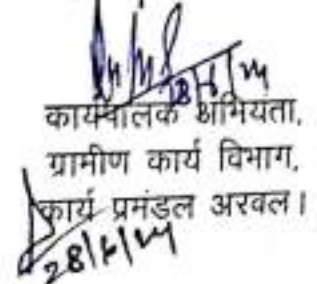 कार्यपालक अभियंता,
ग्रामीण कार्य विभाग,
कार्य प्रमंडल अरवल।
28/6/24